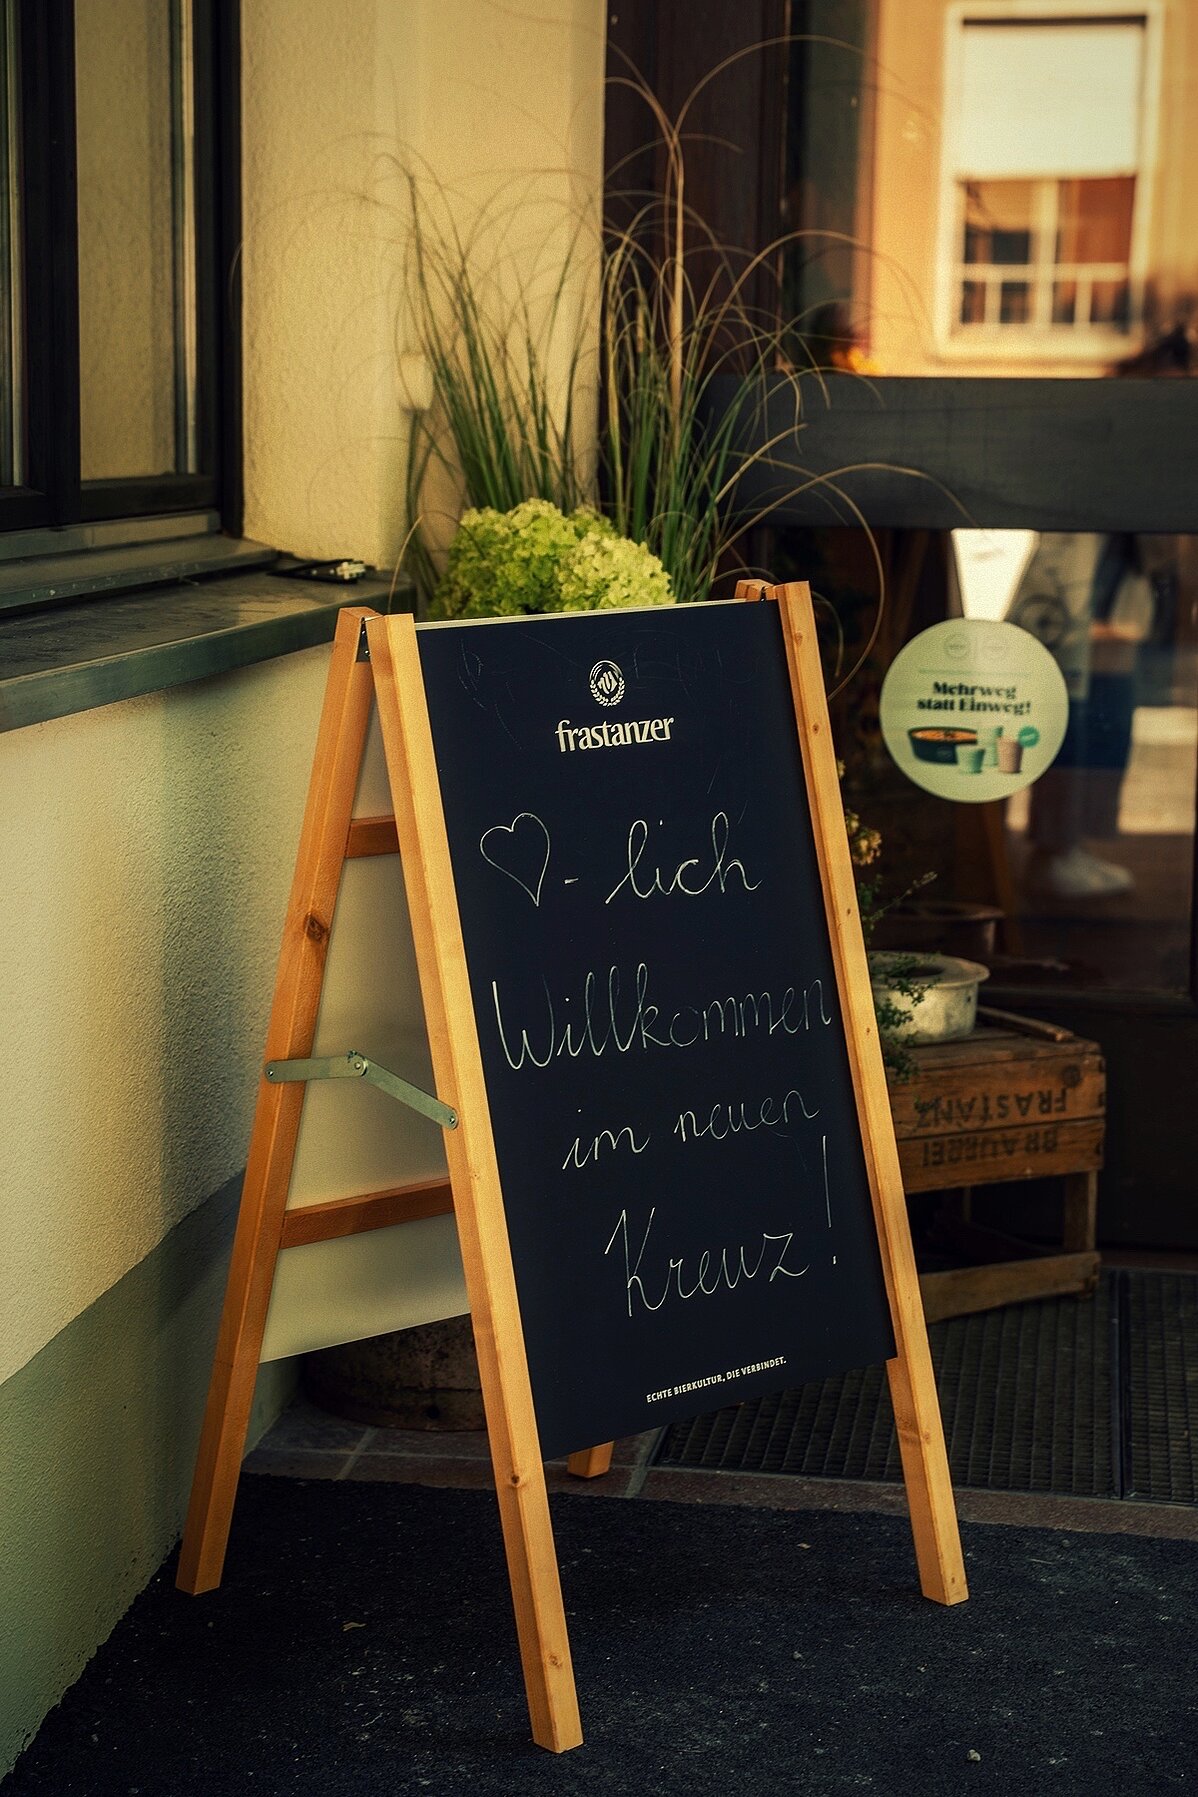 frastanzer
♡- lich
Willkommen
im neuen
Kreuz!
ECHTE BIERKULTUR, DIE VERBINDET.
Mehrweg
statt Einweg!
FRASTANZ
BRAUEREI